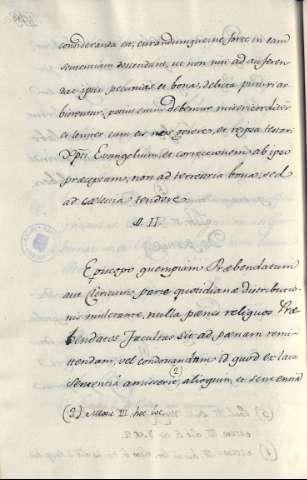 consideranda est, curandumque ne forte in eam
sententiam descendant, ut non nisi ad auferen-
das ipsis pecunias et bona, delicta puniri ar-
bitrentur, potius enim debemus misericorditer
et leniter cum eis agere, et ipsa testari
Xpti Evangelium, et correctionem ab ipso
præceptam, non ad terrestria bona, sed
ad cælestia tendere.
§. II.
Episcopo quempiam Præbendatum
aut Clericum, parte quotidianæ distributio-
nis mulctante, nulla penes reliquos Præ-
bendatos facultas sit ad pænam remit-
tendam, vel condonandam id quod ex lata
sententia amiserit, alioquin, et sententia
(2)
(2) Mexic. III. hoc loc.